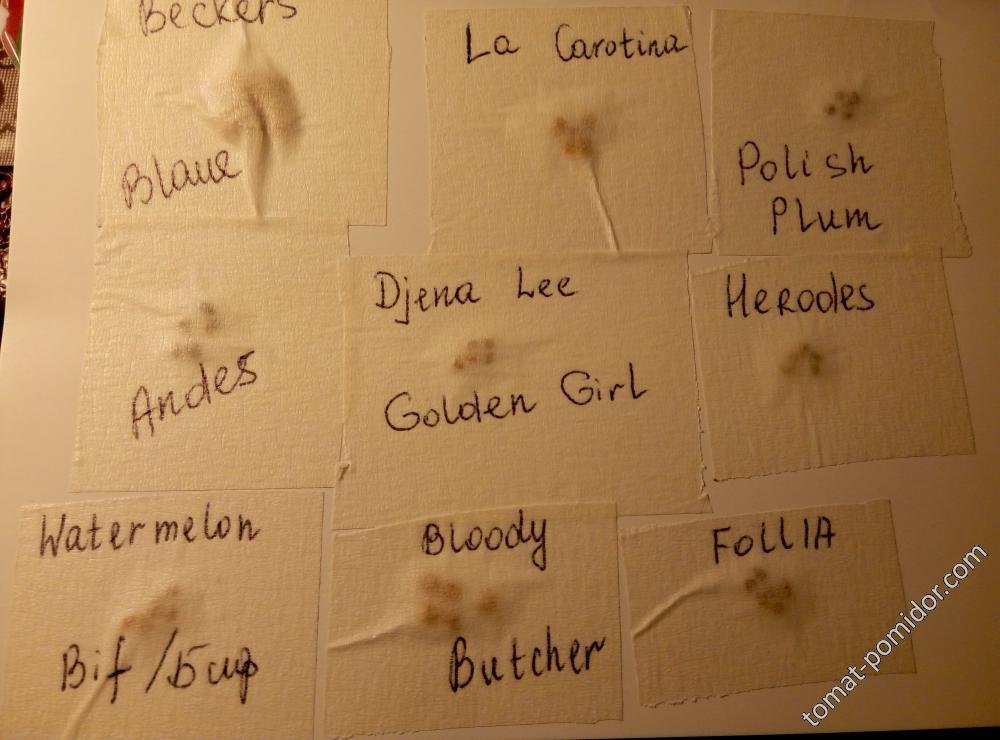 Beckers
Blaue
La Carotina
Polish
Plum
Andes
Djena Lee
Golden Girl
Herodes
Watermelon
Bif /Бир
Bloody
Butcher
FOLLIA
tomat-pomidor.com